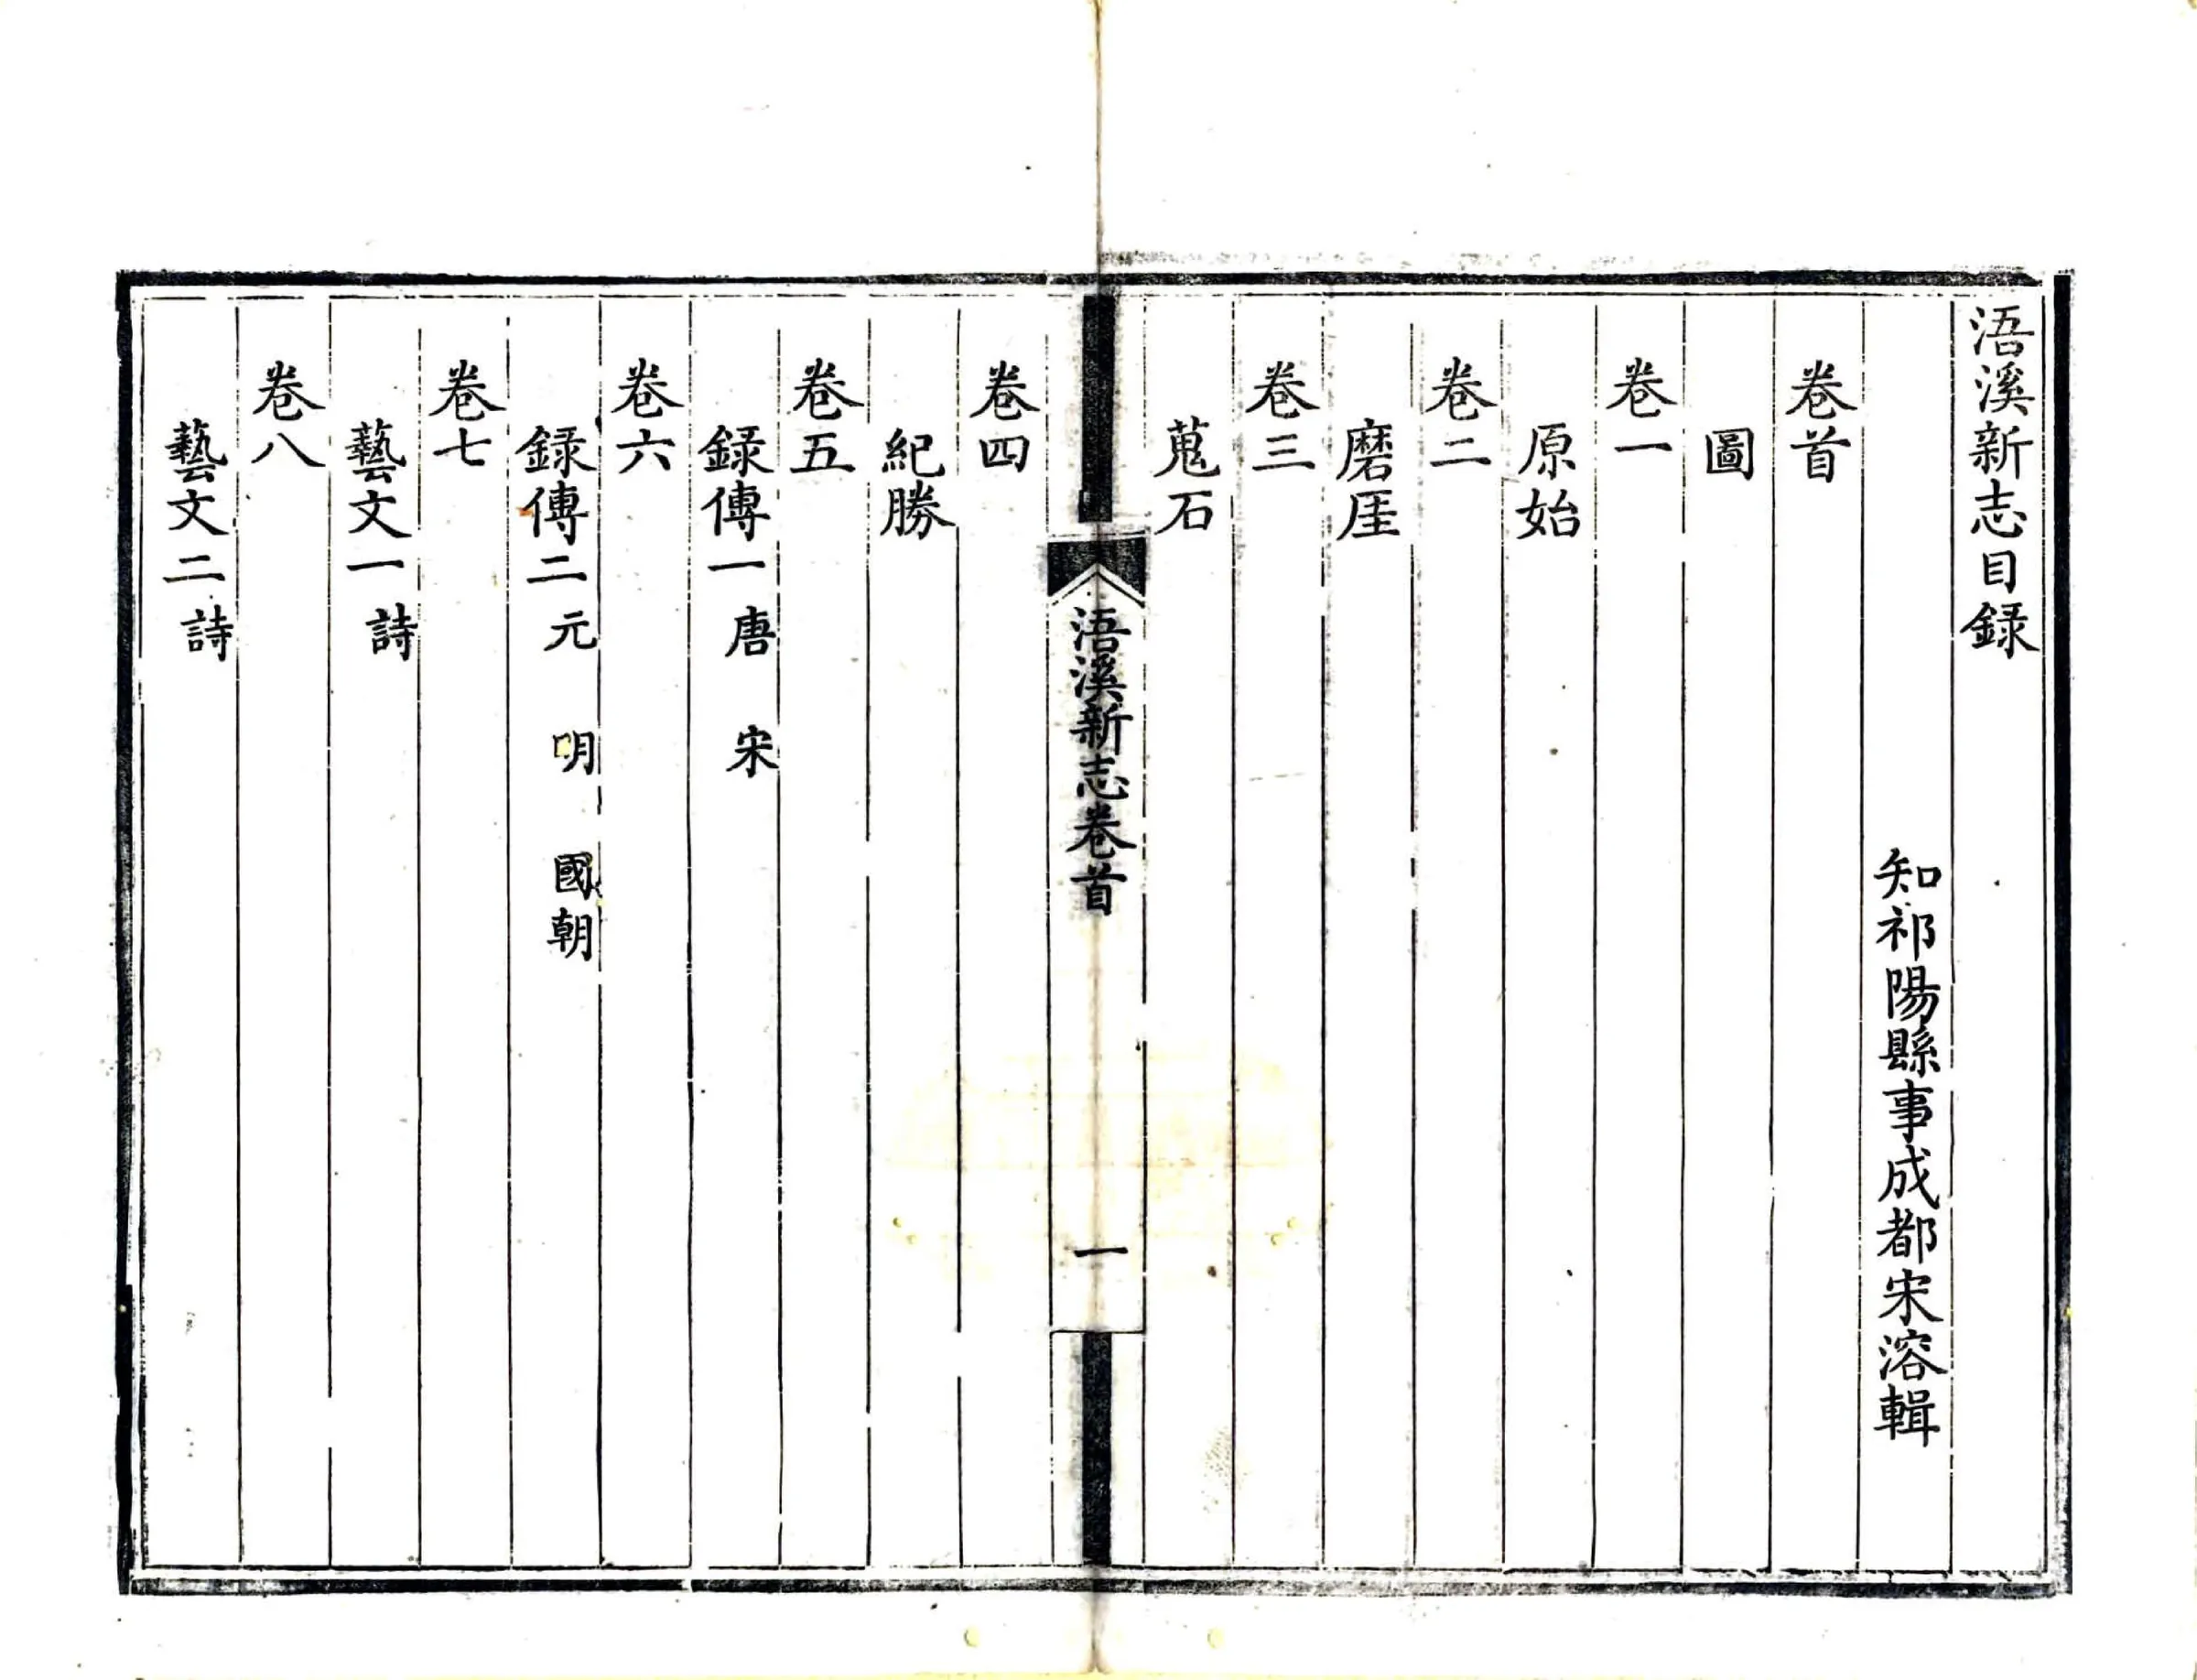 浯溪新志目録
知祁陽縣事成都宋溶輯
卷首
圖
卷一
原始
卷二
磨厓
卷三
蒐石
浯溪新志卷首
一
卷四
紀勝
卷五
録傳一 唐 宋
卷六
録傳二 元 明 國朝
卷七
藝文一 詩
卷八
藝文二 詩